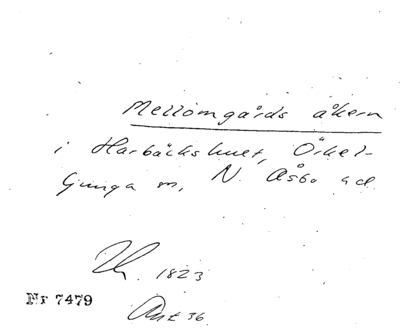 Mellomgårds åkern
i Harbäckshult, Örkel-
ljunga sn, N. Åsbo hd.
1823
Nr 7479
Ant 36